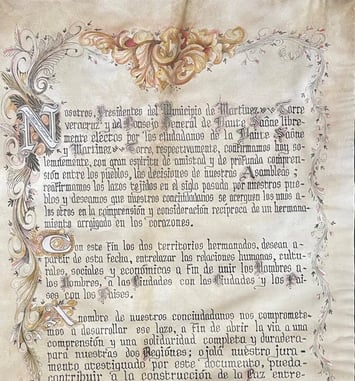 Nosotros, Presidentes del Municipio de Martinez de la Torre
Veracruz y del Consejo General de Haute Saône libre-
mente electos por los ciudadanos de la Haute Saône
y Martinez de la Torre, respectivamente, confirmamos hoy so-
lemnemente, con gran espíritu de amistad y de profunda compren-
sión entre los pueblos, las decisiones de nuestras Asambleas;
reafirmamos los lazos tejidos en el siglo pasado por nuestros pue-
blos y deseamos que nuestros conciudadanos se acerquen los unos a
los otros en la comprensión y consideración recíproca de un hermana-
miento arraigado en los corazones.
Con este fin los dos territorios hermanados, desean a
partir de esta fecha, entrelazar las relaciones humanas, cultu-
rales, sociales y económicos a fin de unir los Hombres a
los Hombres, a las Ciudades con las Ciudades y los Paí-
ses con los Países.
A nombre de nuestros conciudadanos nos compromete-
mos a desarrollar ese lazo, a fin de abrir la vía a una
comprensión y una solidaridad completa y duradera
para nuestras dos Regiónes; ojalá nuestro jura-
mento atestiguado por este documento, pueda
contribuir a la construcción de la Paz entre